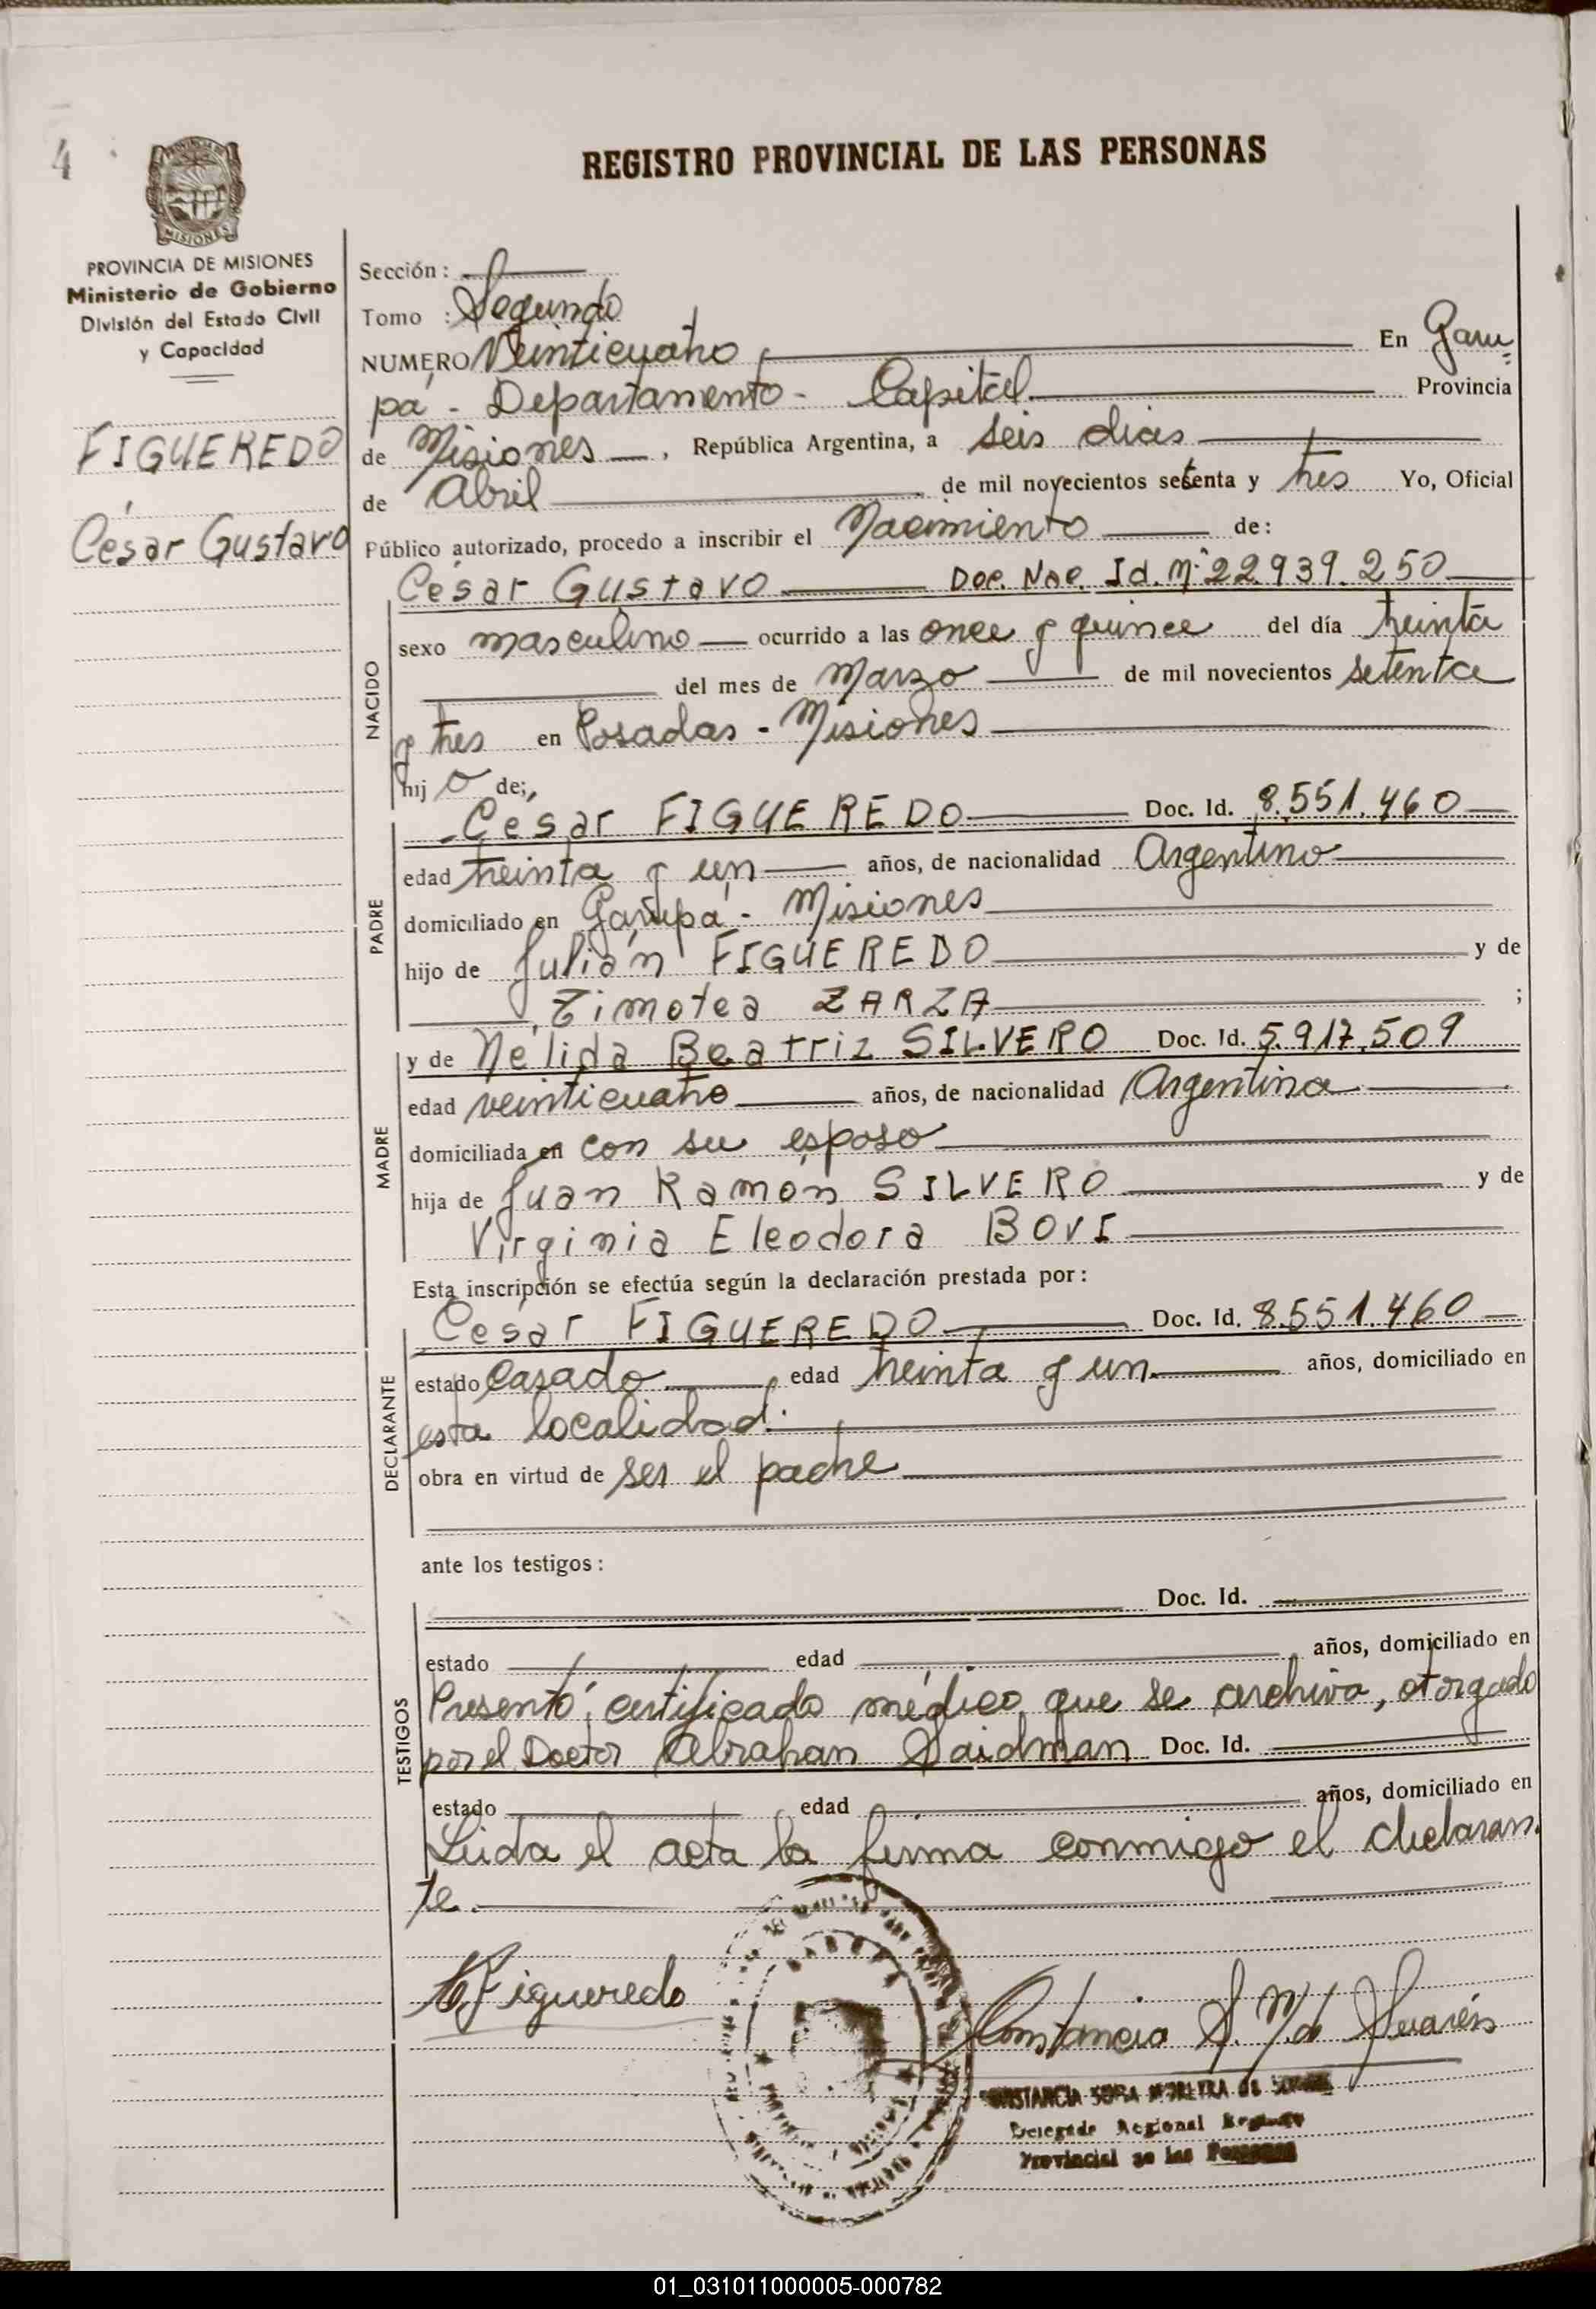 4
REGISTRO PROVINCIAL DE LAS PERSONAS
MISIONES
PROVINCIA DE MISIONES
Ministerio de Gobierno
División del Estado Civil
y Capacidad
FIGUEREDO
César Gustavo
Sección :
Tomo : Segundo
NUMERO Veinticuatro En Garu=
pá - Departamento - Capital Provincia
de Misiones , República Argentina, a seis dias
de Abril de mil novecientos setenta y tres Yo, Oficial
Público autorizado, procedo a inscribir el Nacimiento de:
César Gustavo Doc. Nac. Id. Nº 22.939.250
NACIDO
sexo masculino ocurrido a las once y quince del día treinta
del mes de Marzo de mil novecientos setenta
y tres en Posadas - Misiones
hij o de;
PADRE
César FIGUEREDO Doc. Id. 8.551.460
edad treinta y un años, de nacionalidad Argentino
domiciliado en Garupá - Misiones
hijo de Julián FIGUEREDO y de
Timotea ZARZA ;
MADRE
y de Nélida Beatriz SILVERO Doc. Id. 5.917.509
edad veinticuatro años, de nacionalidad Argentina
domiciliada en con su esposo
hija de Juan Ramón SILVERO y de
Virginia Eleodora BOVI
Esta inscripción se efectúa según la declaración prestada por:
DECLARANTE
César FIGUEREDO Doc. Id. 8.551.460
estado Casado edad treinta y un años, domiciliado en
esta localidad.
obra en virtud de ser el padre
ante los testigos:
TESTIGOS
Doc. Id.
estado edad años, domiciliado en
Presentó certificado médico que se archiva, otorgado
por el Doctor Abrahan Saidman Doc. Id.
estado edad años, domiciliado en
Leida el acta la firma conmigo el declaran
te.
Figueredo
Constancia S. M. de Suarés
CONSTANCIA MOREYRA DE
Delegada Regional
Provincial de las Personas
01_031011000005-000782